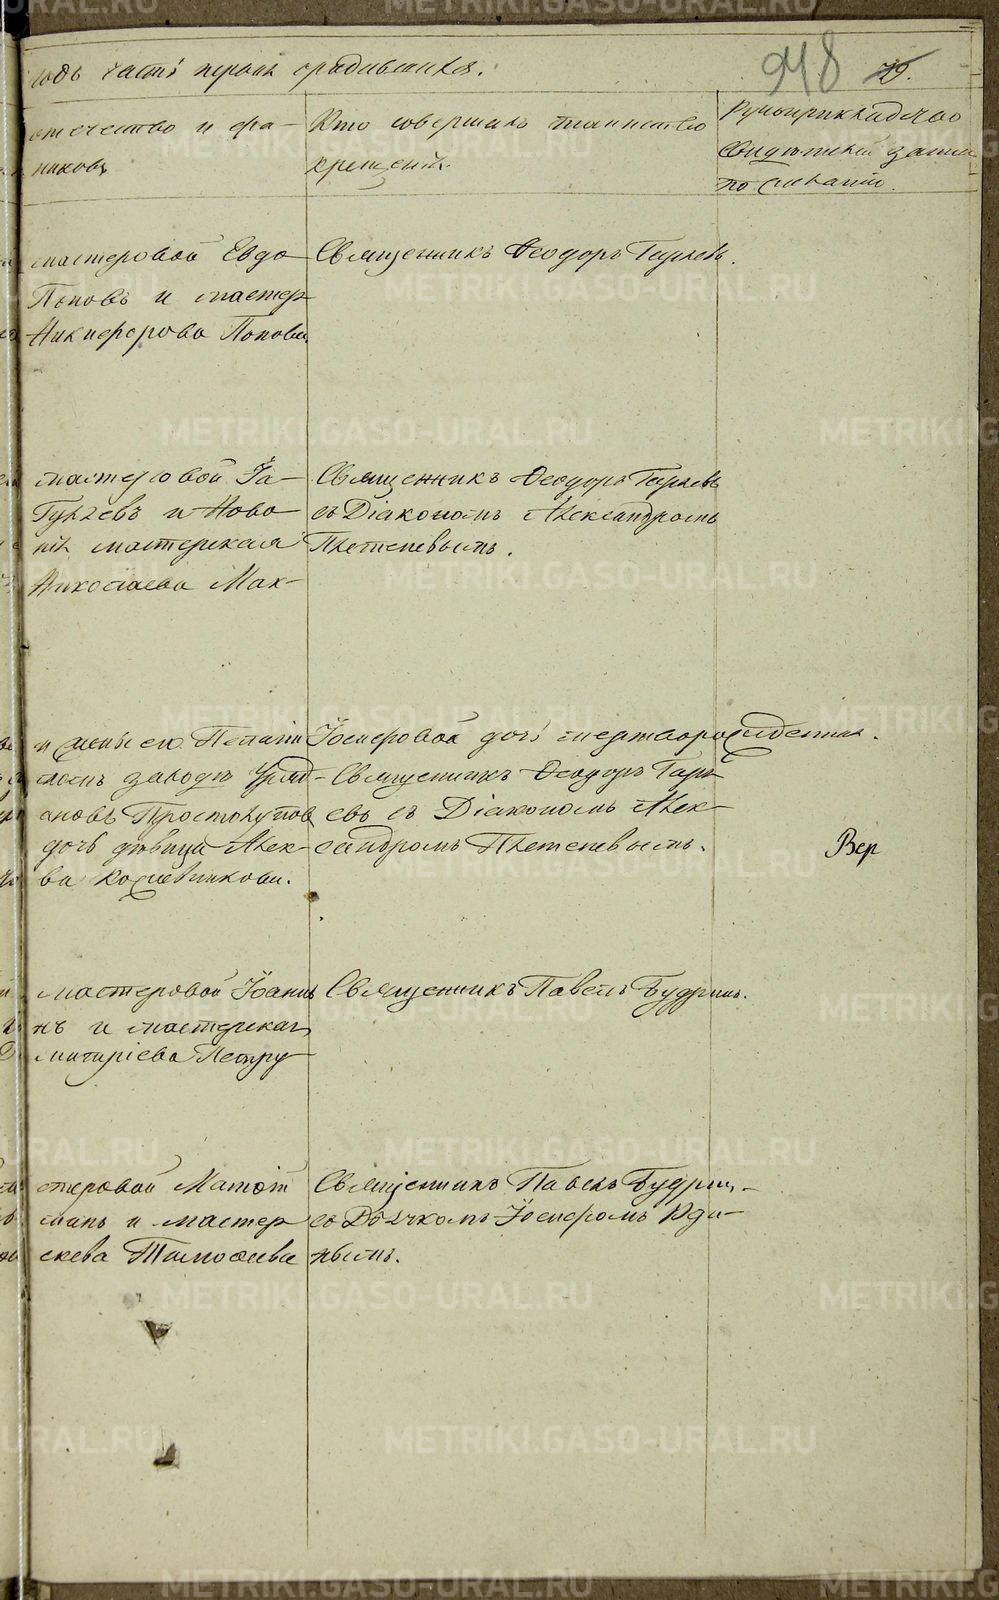 годъ часть первая о родившихся.
948 79.
отечество и фа-
миліи
Кто совершалъ таинство
крещенія.
Рукоприкладство
свидѣтелей записи
по желанію.
мастеровой Евдо-
Поповъ и мастер
Никифорова Попова
Священникъ Ѳеодоръ
мастеровой Га-
и Ново
мастерская
Николаева Мак-
Священникъ Ѳеодоръ
съ Діакономъ Александромъ
Плетеневымъ.
и жены его
скомъ заводѣ
ановъ Простокутов
дочь дѣвица Алек-
ва Кожевникова.
дочь мертворожденная.
Священникъ Ѳеодоръ
съ Діакономъ Алек-
сандромъ Плетеневымъ.
Вер
мастеровой Іоанн
нъ и мастерская
митріева Петру
Священникъ Павелъ Будринъ.
стеровой Матѳій
минъ и мастер
сеева Тимоѳеева
Священникъ Павелъ Будрин-
съ Дьячкомъ Іосифомъ Юди-
нымъ.
METRIKI.GASO-URAL.RU